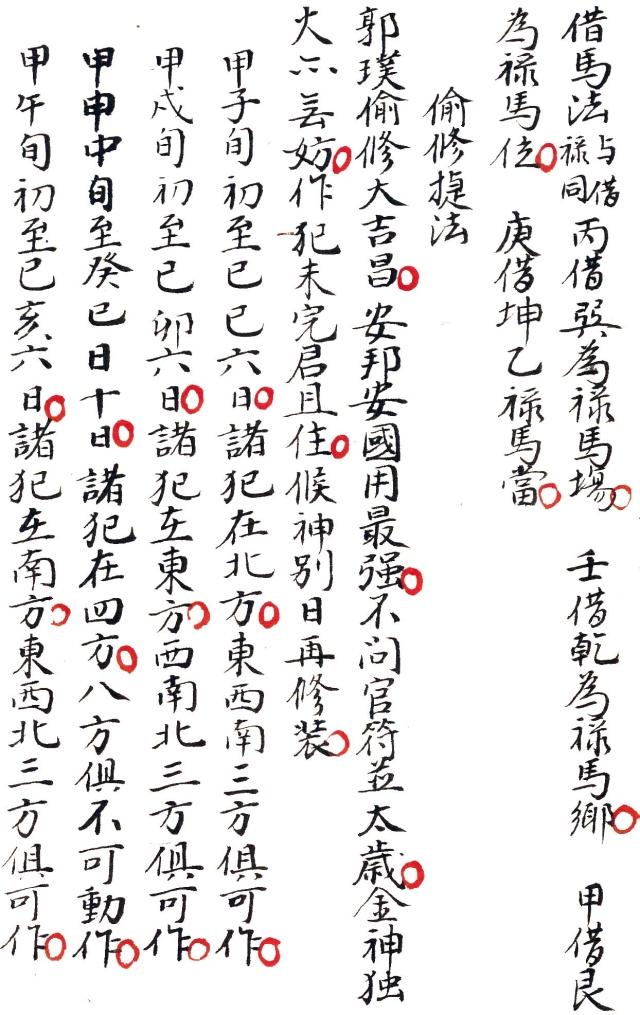 借馬法与借禄同丙借巽為禄馬場 壬借乾為禄馬鄉 甲借艮
為禄馬位 庚借坤乙禄馬當
偷修捷法
郭璞偷修大吉昌 安邦安國用最强不问官符並太歲金神独
火六無妨作犯未完君且住候神别日再修装
甲子旬初至己巳六日諸犯在北方東西南三方俱可作
甲戍旬初至己卯六日諸犯在東方西南北三方俱可作
甲申中旬至癸巳日十日諸犯在四方八方俱不可動作
甲午旬初至己亥六日諸犯在南方東西北三方俱可作